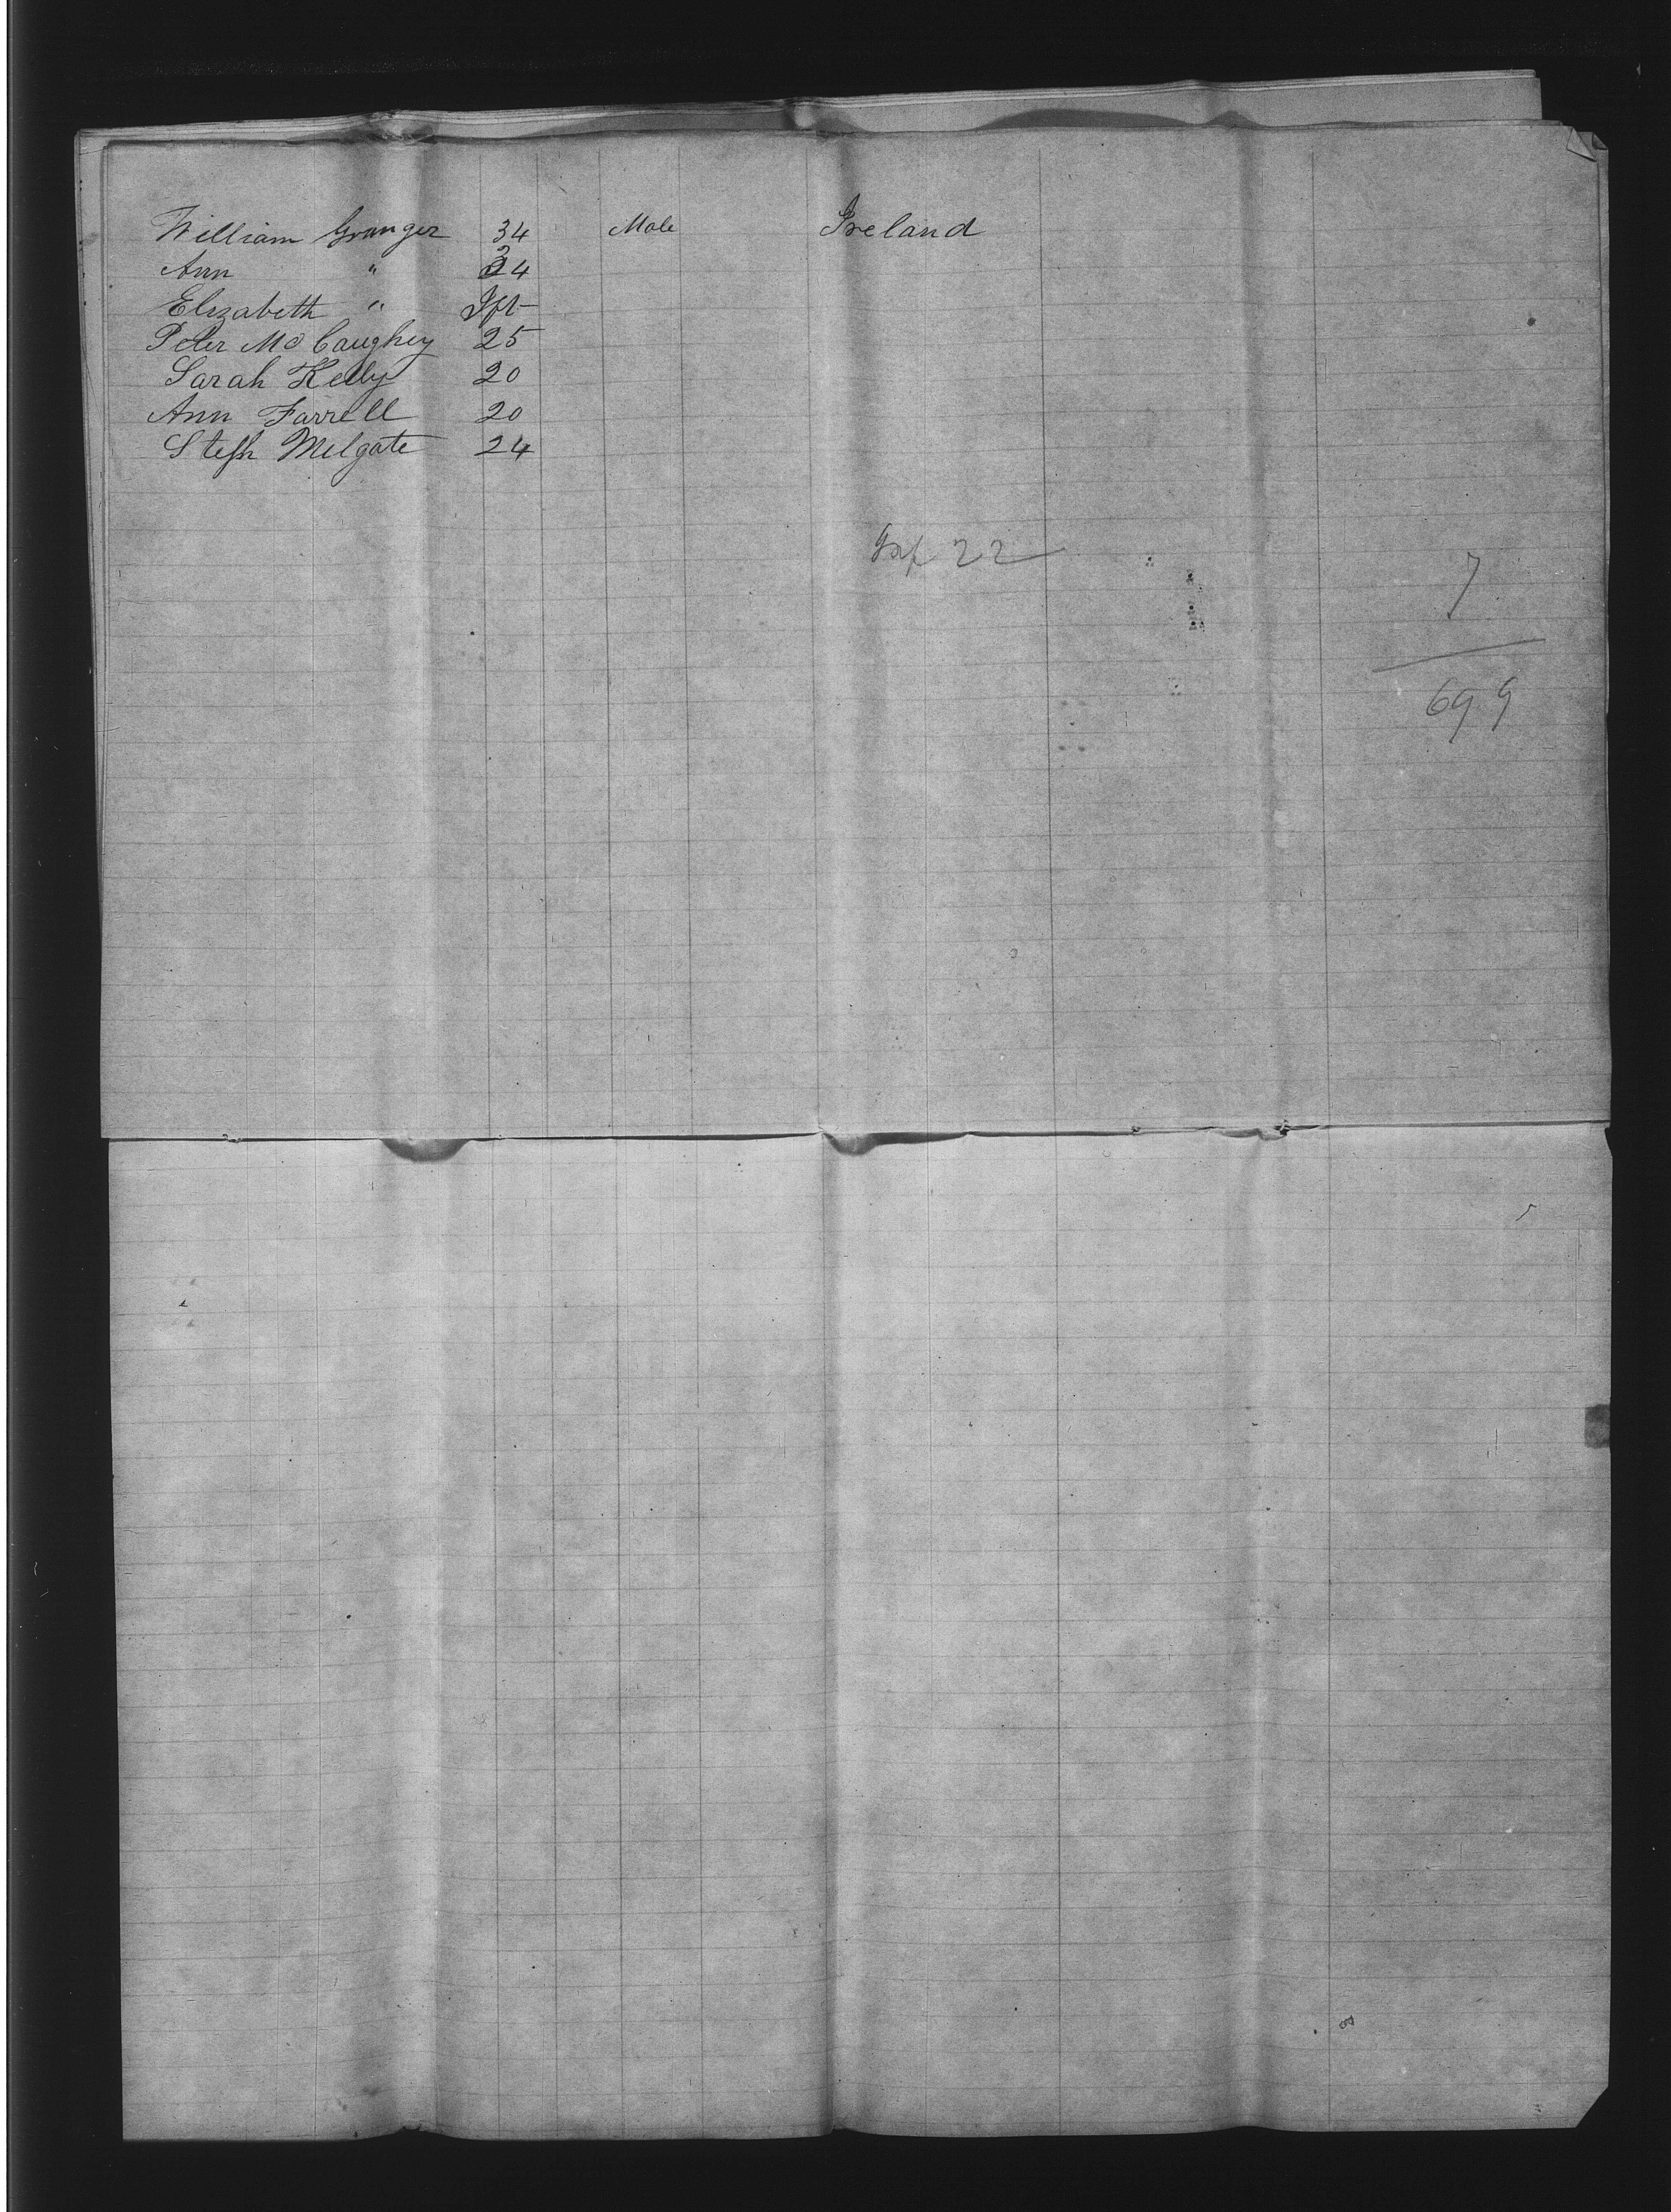 William Granger 34 Male Ireland
Ann " 34
Elizabeth " Ift
Peter McCaughey 25
Sarah Kelly 20
Ann Farrell 20
Steph Melgate 24
Inf 22
7
699